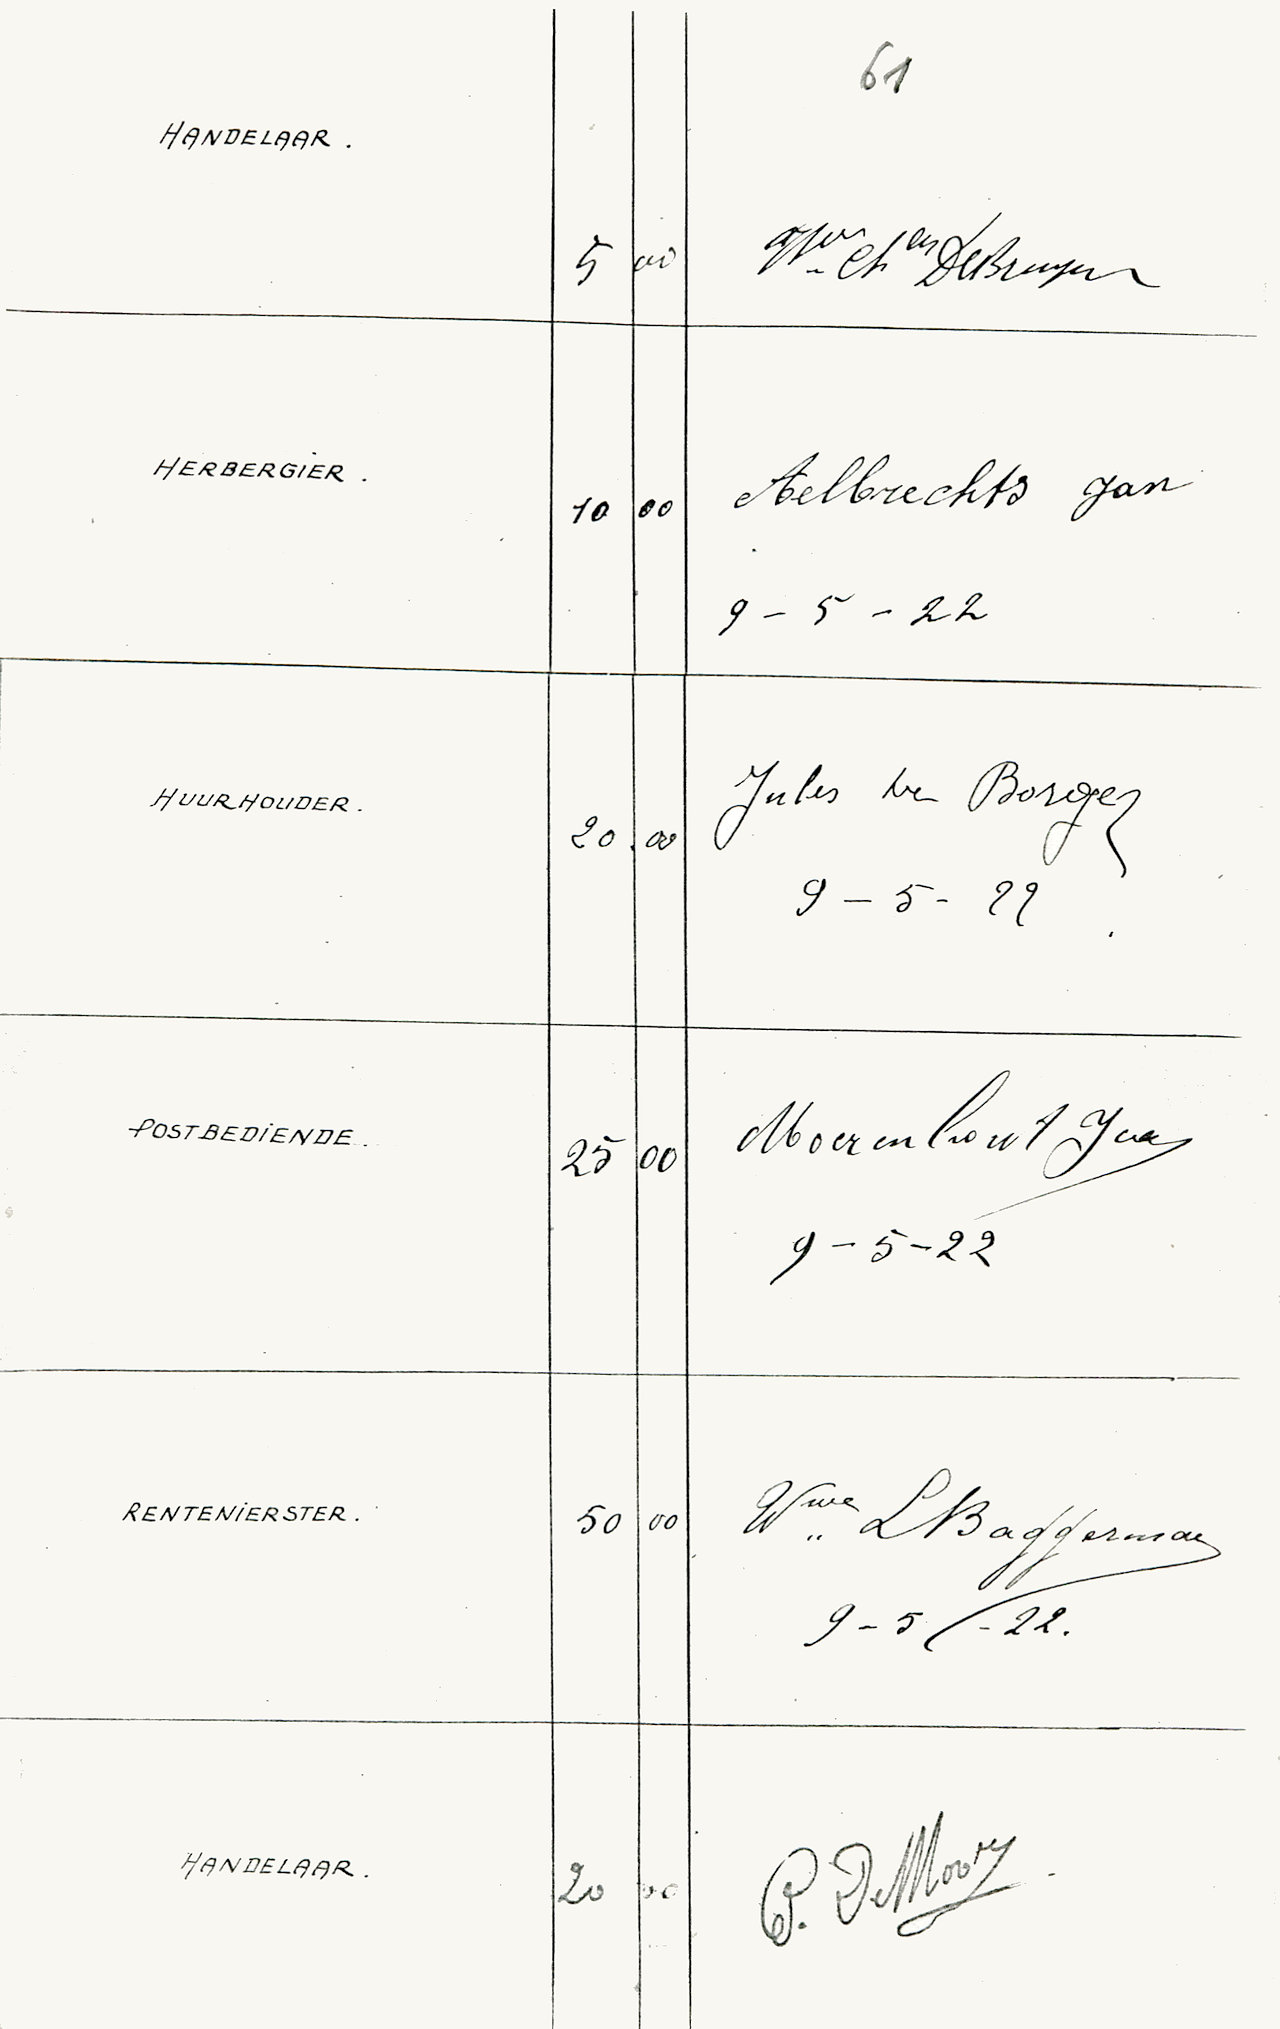 61
HANDELAAR.
5 00 Wwe Ch en DeBruyn
HERBERGIER.
10 00 Aelbrechts Jan
9 - 5 - 22
HUURHOUDER.
20.00 Jules De Borger
9 - 5 - 22
POSTBEDIENDE.
25 00 Moerenhout
9 - 5 - 22
RENTENIERSTER.
50 00 Wwe L Baggerman
9 - 5 - 22.
HANDELAAR.
20 00 P. DeMoor